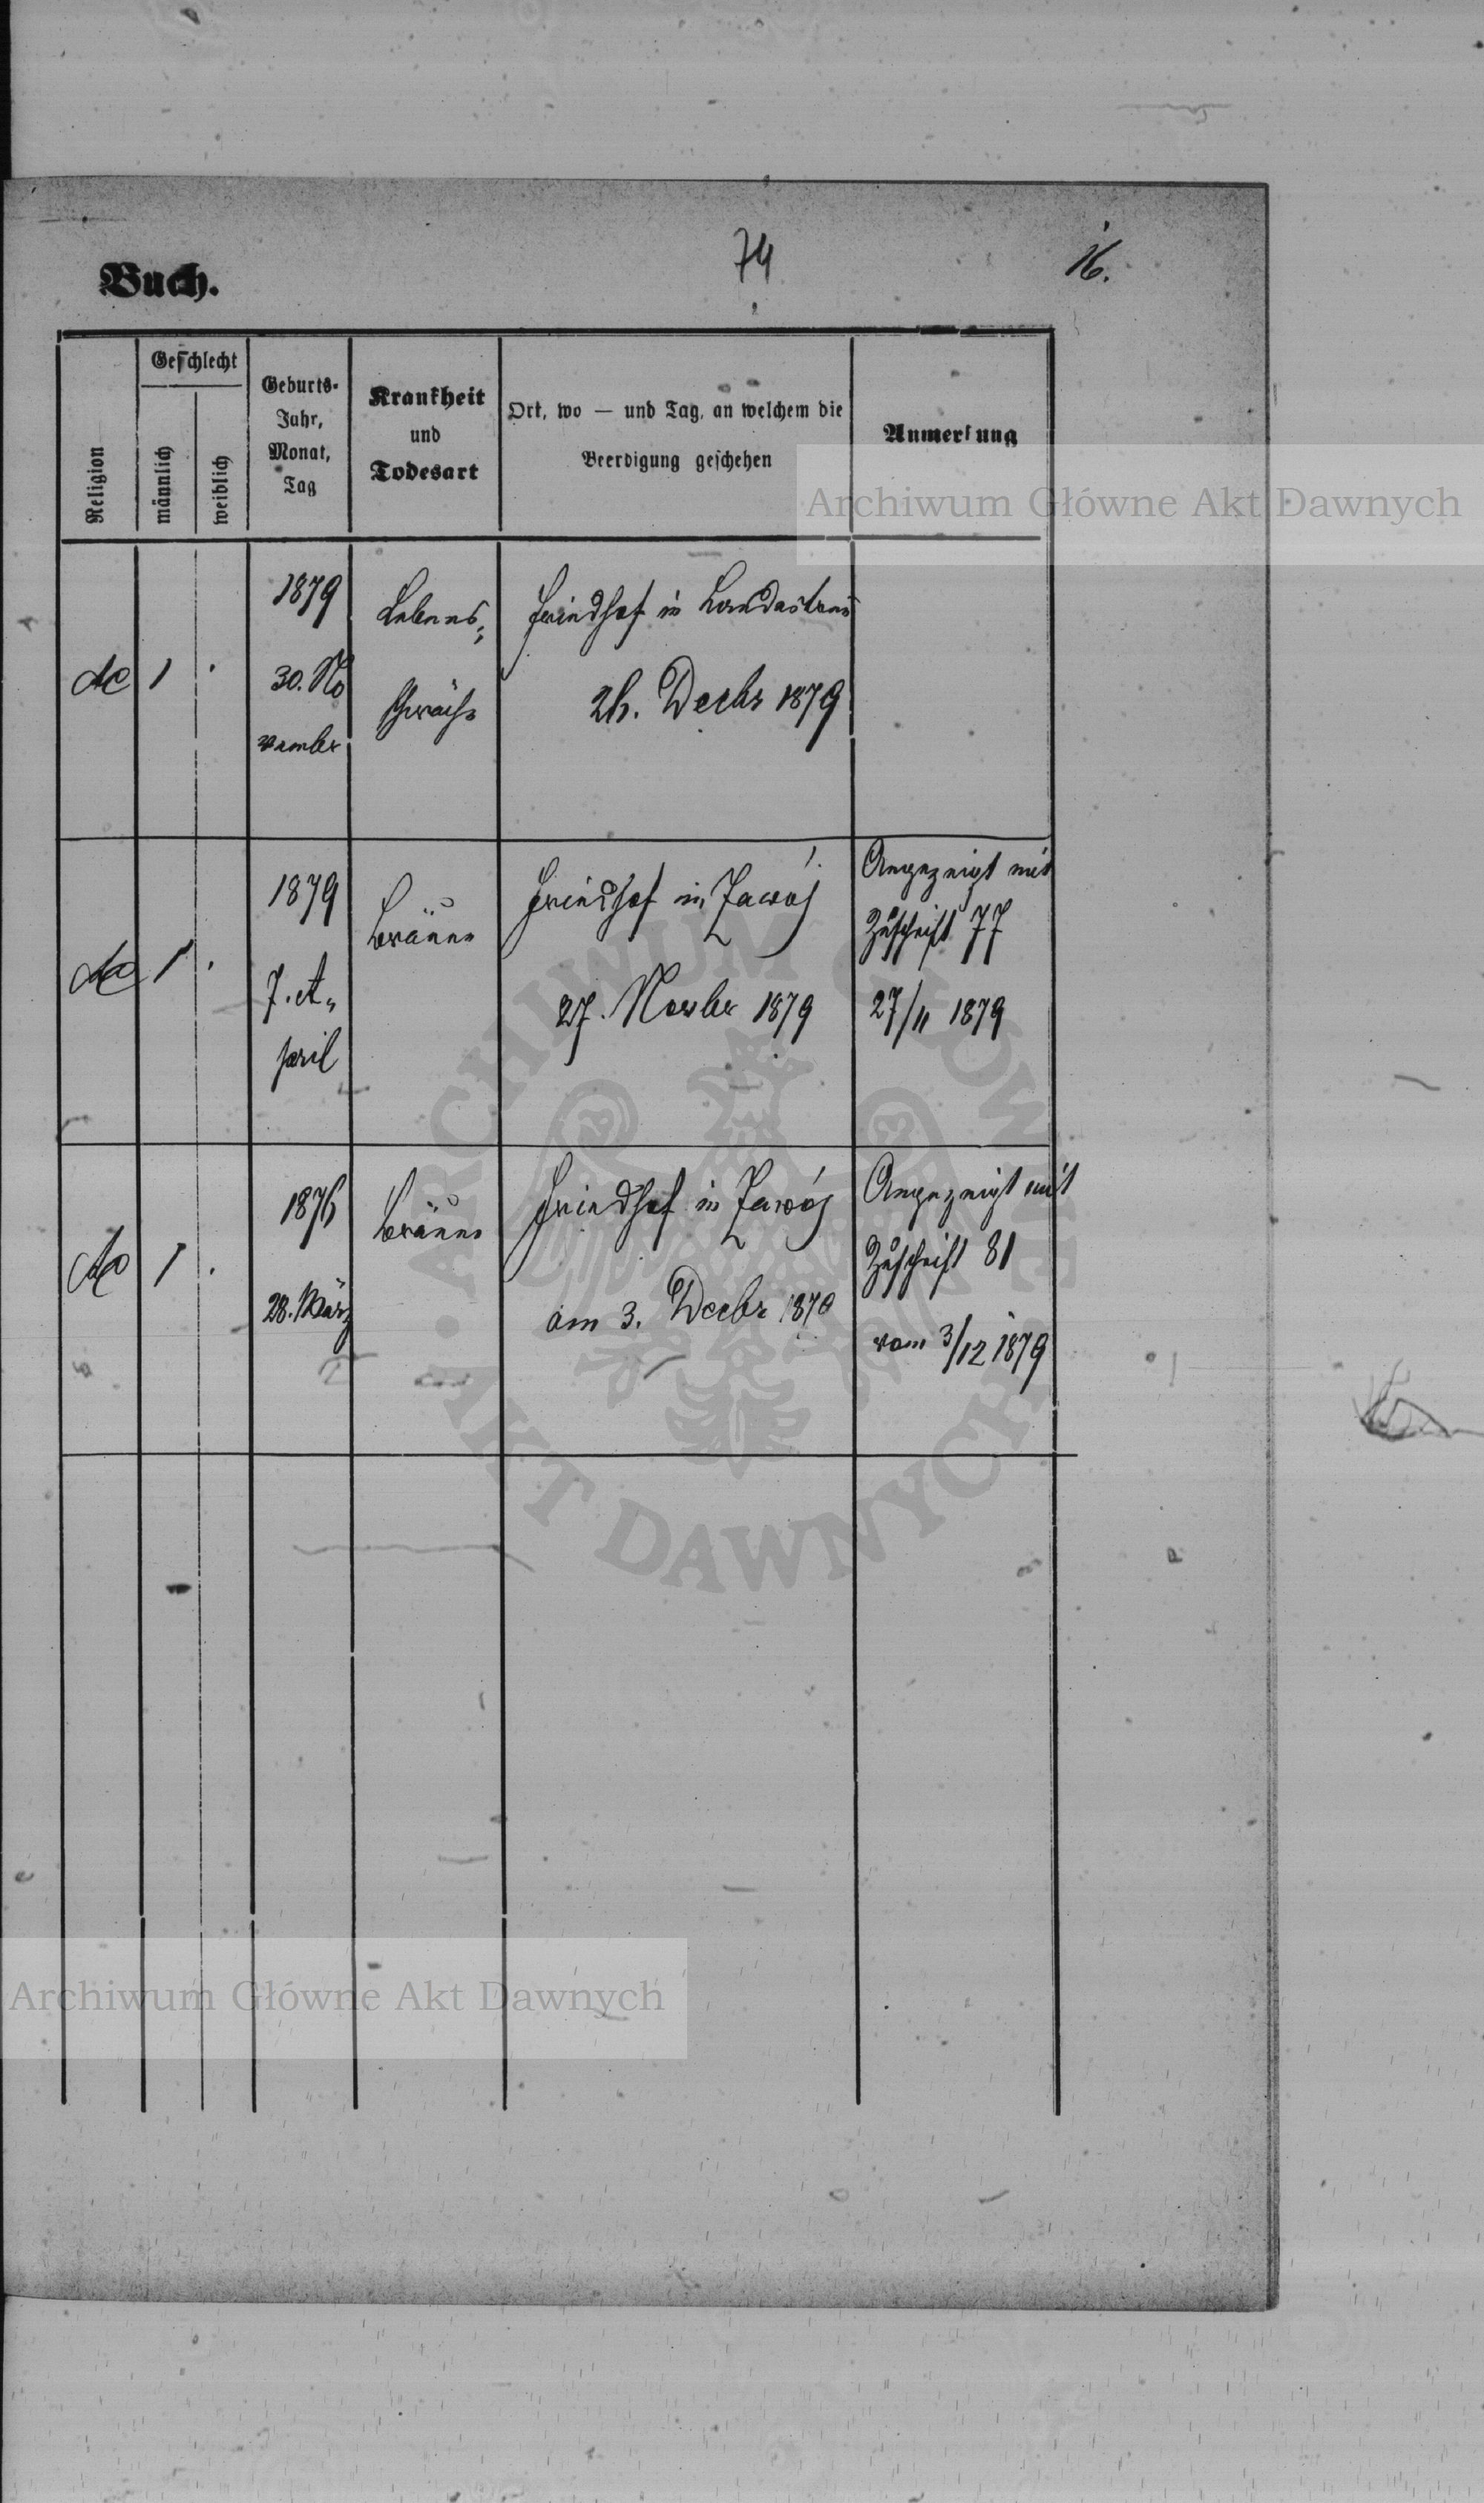 Buch.
74
16.
Religion
Geschlecht
männlich
weiblich
Geburts-
Jahr,
Monat,
Tag
Krankheit
und
Todesart
Ort, wo — und Tag, an welchem die
Beerdigung geschehen
Anmerkung
1
1879
30. No
vember
Lebens=
schwäche
Friedhof in Landestreu
2h. Decbr 1879
1
1879
7. A=
pril
Bräune
Friedhof in Zawój
27. Novbr 1879
Angezeigt mit
Zuschrift 77
27/11 1879
1
1876
28. März
Bräune
Friedhof in Zawój
am 3. Decbr 1879
Angezeigt mit
Zuschrift 81
vom 3/12 1879
Archiwum Główne Akt Dawnych
ARCHIWUM GŁÓWNE
AKT DAWNYCH
Archiwum Główne Akt Dawnych